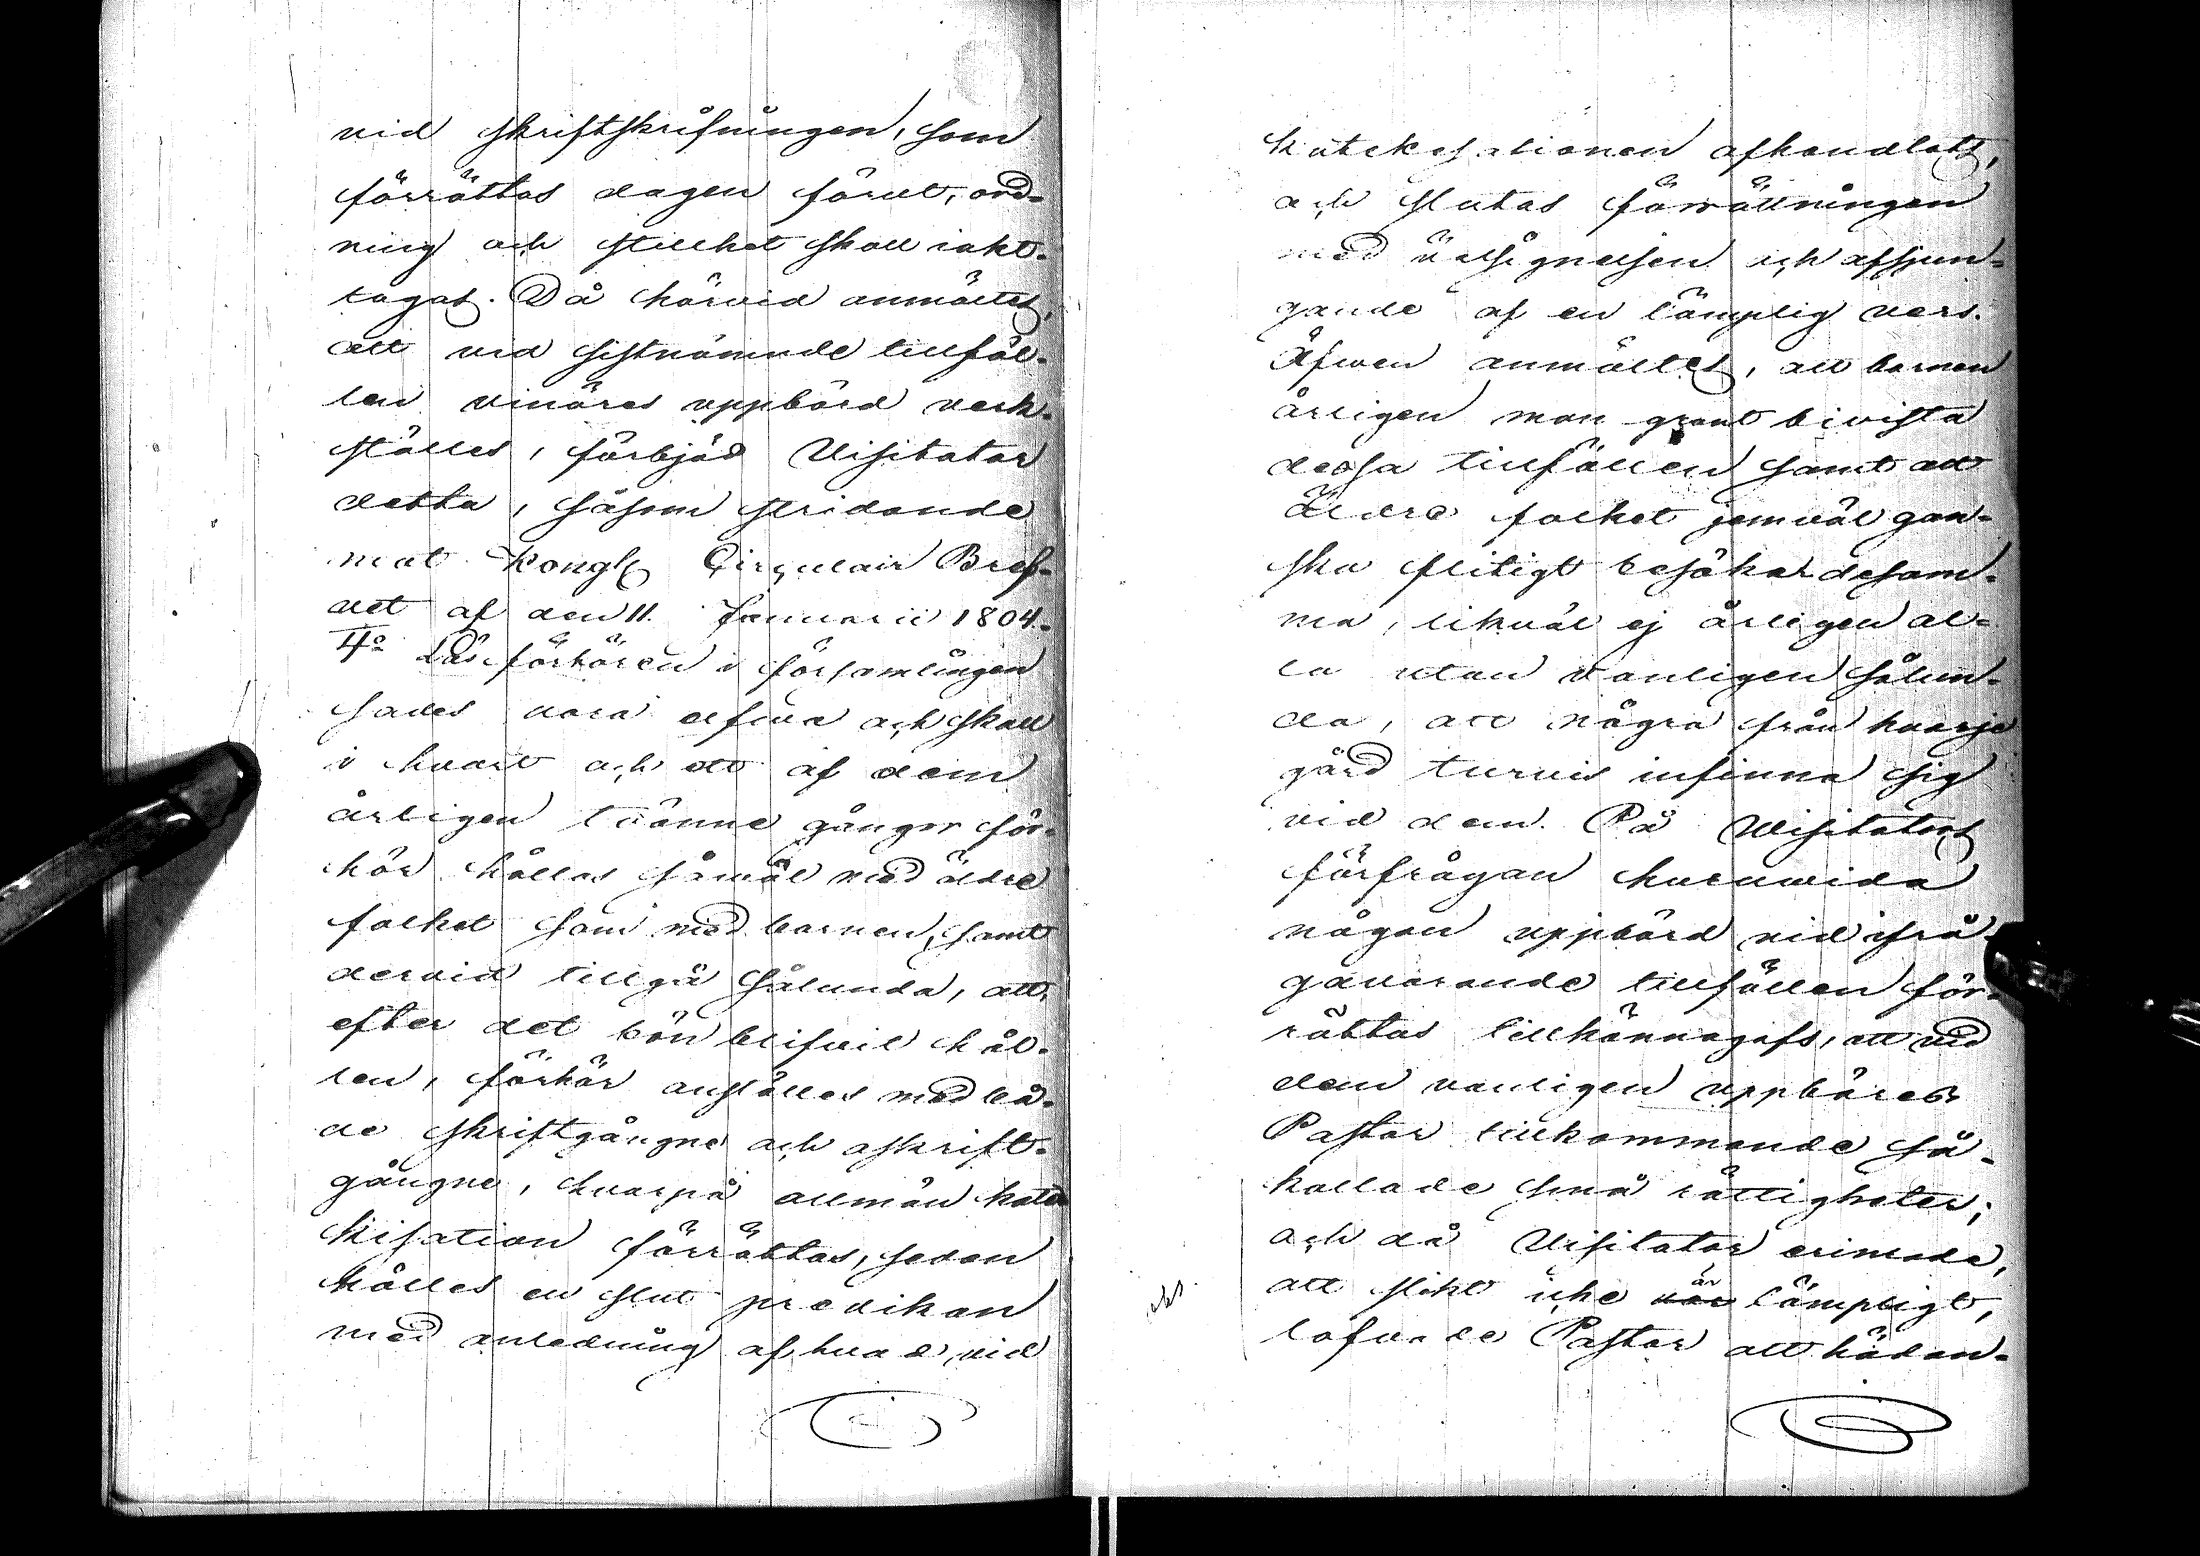 vid skriftskrifningen, som
förrättas dagen förut, ord-
ning och stillhet skall iakt-
tagas. Då härvid anmältes,
att vid sistnämnde tillfäl-
len vinöres uppbörd verk-
ställes, förbjöd Visitator
detta, såsom stridande
mot Kongl. Circulair Bref-
vet af den 11. Januarii 1804.
4o Läsförhören i församlingen
sades vara elfva och skall
i hvart och ett af dem
årligen tvänne gånger för-
hör hållas såwäl med äldre
folket som med barnen, samt
dervid tillgå sålunda, att,
efter det bön blifvit hål-
len, förhör anställes med bå-
de skriftgångne och oskrift-
gångne, hvarpå allmän kate
kisation förrättas, sedan
hålles en slut predikan
med anledning af hvad, vid
katekesationen afhandlats,
och slutas förrättningen
med välsignelsen och afsjun-
gande af en lämplig vers.
Äfwen anmältes, att barnen
årligen man grant bivista
dessa tillfällen samt att
äldre folket jemväl gan-
ska flitigt besöker desam-
ma, likväl ej årligen al-
la utan vanligen sålun-
da, att några från hvarje
gård turvis infinna sig
vid dem. På Visitators
förfrågan huruwida
någon uppbörd vid ifrå-
gavarande tillfällen för-
rättas tillkännagafs, att vid
dem vanligen uppbäres
Pastor tillkommande så-
kallade små rättigheter;
och då Visitator erinrade,
att slikt icke var är lämpligt,
lofvade Pastor att hädan-